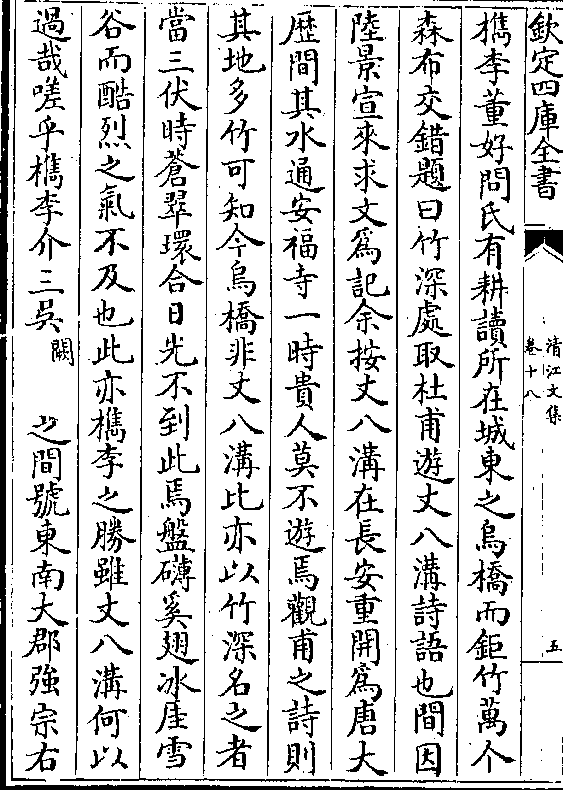 欽定四庫全書
清江文集
卷十八
五
檇李董好問氏有耕讀所在城東之烏橋而鉅竹萬个
森布交錯題曰竹深處取杜甫遊丈八溝詩語也間因
陸景宣來求文為記余按丈八溝在長安重開為唐大
歴間其水通安福寺一時貴人莫不遊焉觀甫之詩則
其地多竹可知今烏橋非丈八溝比亦以竹深名之者
當三伏時蒼翠環合日光不到此焉盤礴奚翅冰厓雪
谷而酷烈之氣不及也此亦檇李之勝雖丈八溝何以
過哉嗟乎檇李介三吳闕　之間號東南大郡強宗右